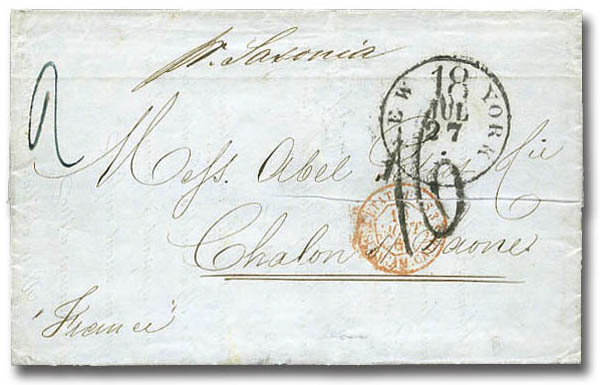 pr. Saxonia
2
NEW YORK
18
JUL
27
16
Mess. Abel & Cie
Chalon s/ Saone
"France"